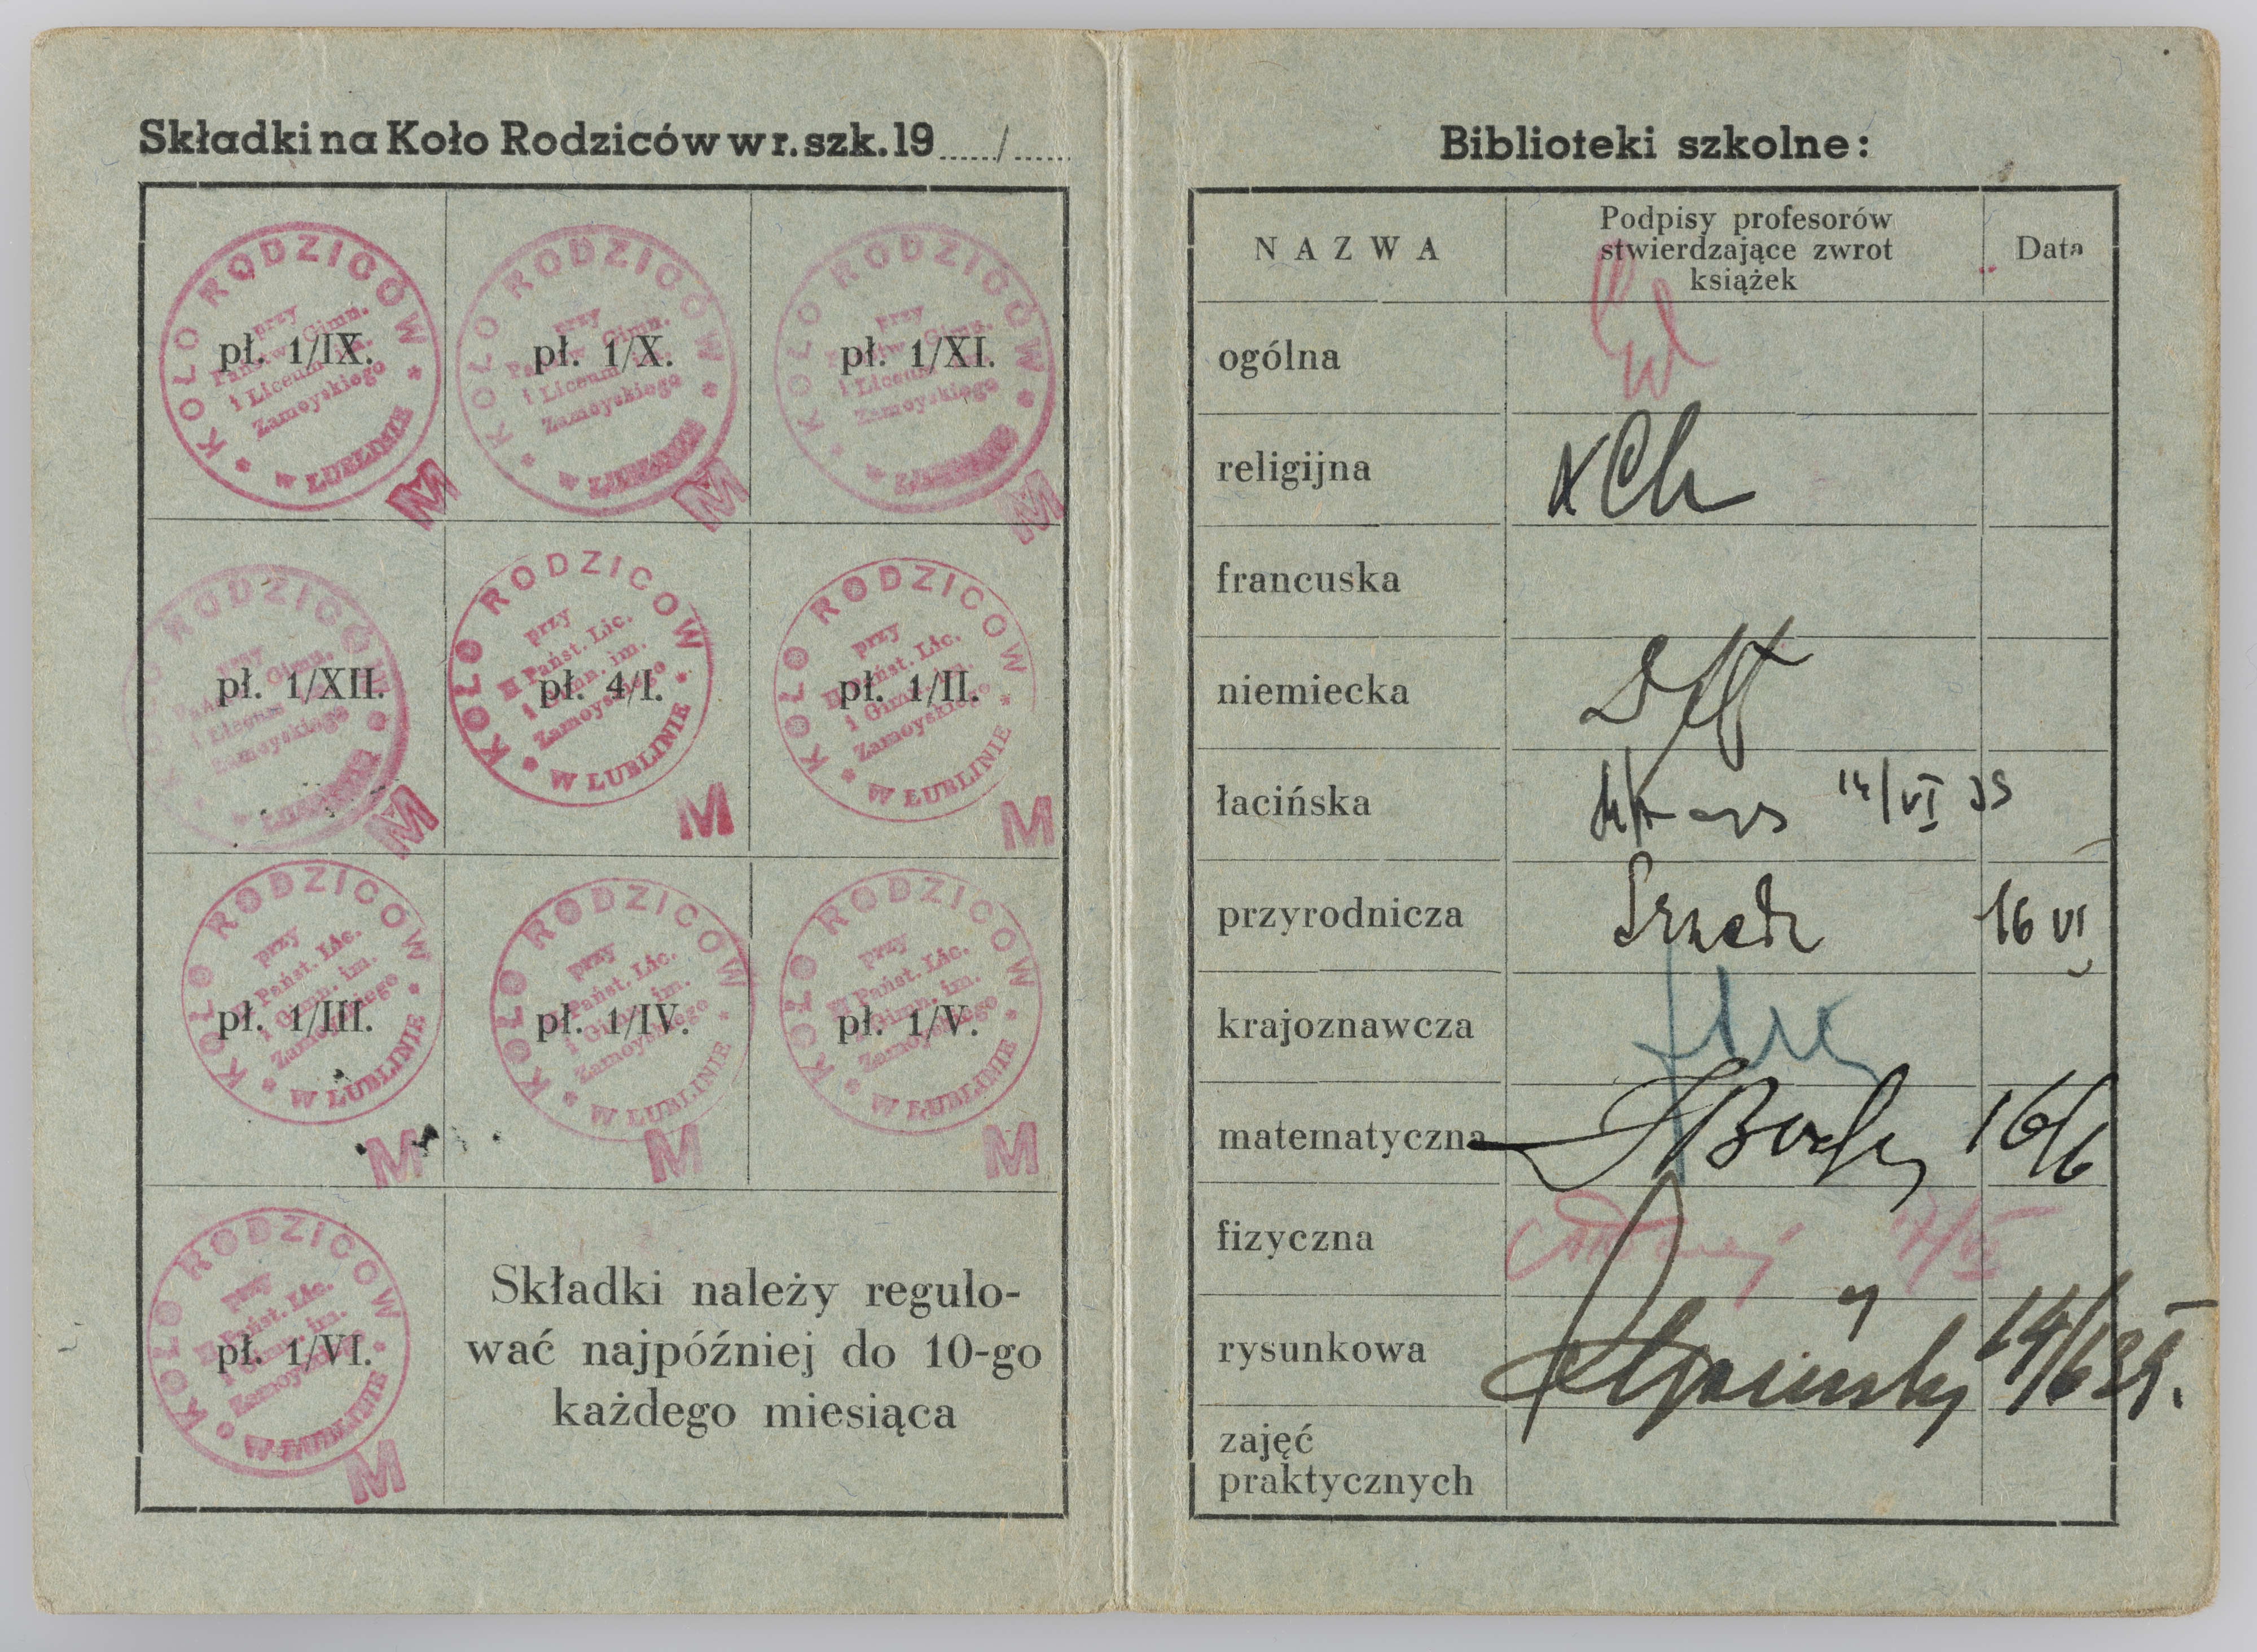 Składki na Koło Rodziców w r. szk. 19...../.....
KOŁO RODZICÓW
przy
Państw. Gimn.
i Liceum im.
Zamoyskiego
w LUBLINIE
pł. 1/IX.
M
KOŁO RODZICÓW
przy
Państw. Gimn.
i Liceum im.
Zamoyskiego
w LUBLINIE
pł. 1/X.
M
KOŁO RODZICÓW
przy
Państw. Gimn.
i Liceum im.
Zamoyskiego
w LUBLINIE
pł. 1/XI.
M
KOŁO RODZICÓW
przy
Państw. Gimn.
i Liceum im.
Zamoyskiego
w LUBLINIE
pł. 1/XII.
M
KOŁO RODZICOW
przy
II Państ. Lic.
i Gimn. im.
Zamoyskiego
W LUBLINIE
pł. 4/I.
M
KOŁO RODZICOW
przy
II Państ. Lic.
i Gimn. im.
Zamoyskiego
W LUBLINIE
pł. 1/II.
M
KOŁO RODZICOW
przy
II Państ. Lic.
i Gimn. im.
Zamoyskiego
W LUBLINIE
pł. 1/III.
M
KOŁO RODZICOW
przy
II Państ. Lic.
i Gimn. im.
Zamoyskiego
W LUBLINIE
pł. 1/IV.
M
KOŁO RODZICOW
przy
II Państ. Lic.
i Gimn. im.
Zamoyskiego
W LUBLINIE
pł. 1/V.
M
KOŁO RODZICOW
przy
II Państ. Lic.
i Gimn. im.
Zamoyskiego
W LUBLINIE
pł. 1/VI.
M
Składki należy regulo-
wać najpóźniej do 10-go
każdego miesiąca
Biblioteki szkolne:
NAZWA
Podpisy profesorów
stwierdzające zwrot
książek
Data
ogólna
religijna
francuska
niemiecka
łacińska 14/VI 39
przyrodnicza 16 VI
krajoznawcza
matematyczna 16/6
fizyczna
rysunkowa 14/6 39.
zajęć
praktycznych